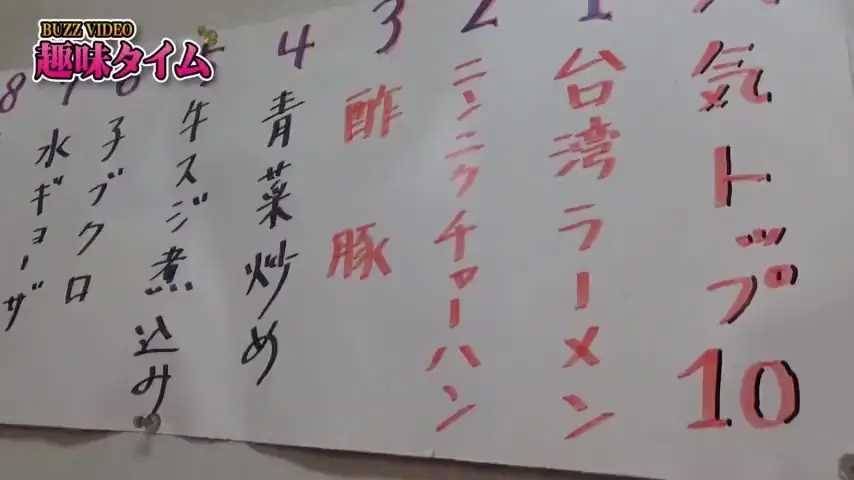 BUZZ VIDEO
趣味タイム
気トップ10
1 台湾ラーメン
2 ニンニクチャーハン
3 酢豚
4 青菜炒め
牛スジ煮込み
6 子ブクロ
7 水ギョーザ
8